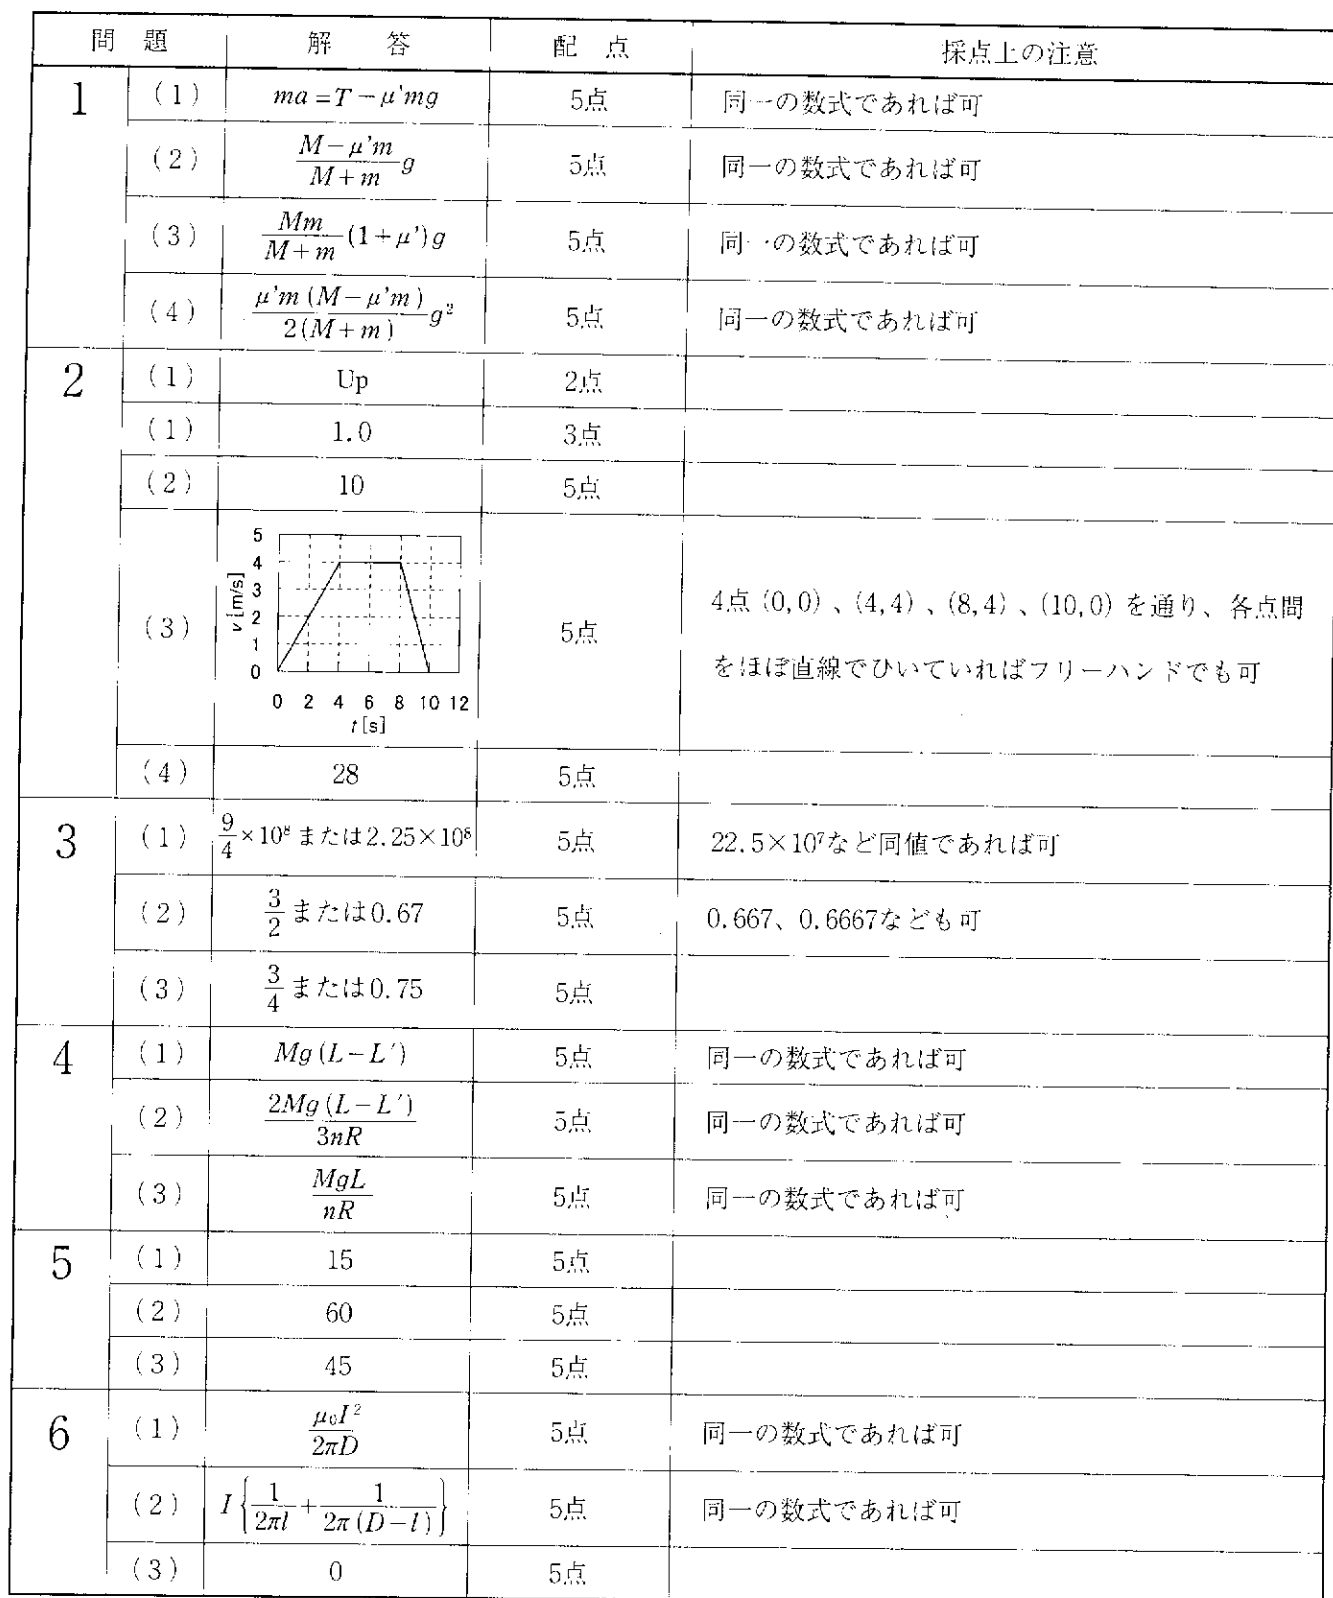 問 題 解 答 配 点 採点上の注意
1 (1) ma=T−μ'mg 5点 同一の数式であれば可
(2) \frac{M−μ'm}{M+m}g 5点 同一の数式であれば可
(3) \frac{Mm}{M+m}(1+μ')g 5点 同一の数式であれば可
(4) \frac{μ'm(M−μ'm)}{2(M+m)}g² 5点 同一の数式であれば可
2 (1) Up 2点
(1) 1.0 3点
(2) 10 5点
(3) 5点
5
4
3
2
1
0
v[m/s]
0 2 4 6 8 10 12
t[s]
4点(0,0)、(4,4)、(8,4)、(10,0)を通り、各点間
をほぼ直線でひいていればフリーハンドでも可
(4) 28 5点
3 (1) \frac{9}{4}×10⁸または2.25×10⁸ 5点 22.5×10⁷など同値であれば可
(2) \frac{3}{2}または0.67 5点 0.667、0.6667なども可
(3) \frac{3}{4}または0.75 5点
4 (1) Mg(L−L′) 5点 同一の数式であれば可
(2) \frac{2Mg(L−L′)}{3nR} 5点 同一の数式であれば可
(3) \frac{MgL}{nR} 5点 同一の数式であれば可
5 (1) 15 5点
(2) 60 5点
(3) 45 5点
6 (1) \frac{μ₀I²}{2πD} 5点 同一の数式であれば可
(2) I{\frac{1}{2πl}+\frac{1}{2π(D−l)}} 5点 同一の数式であれば可
(3) 0 5点